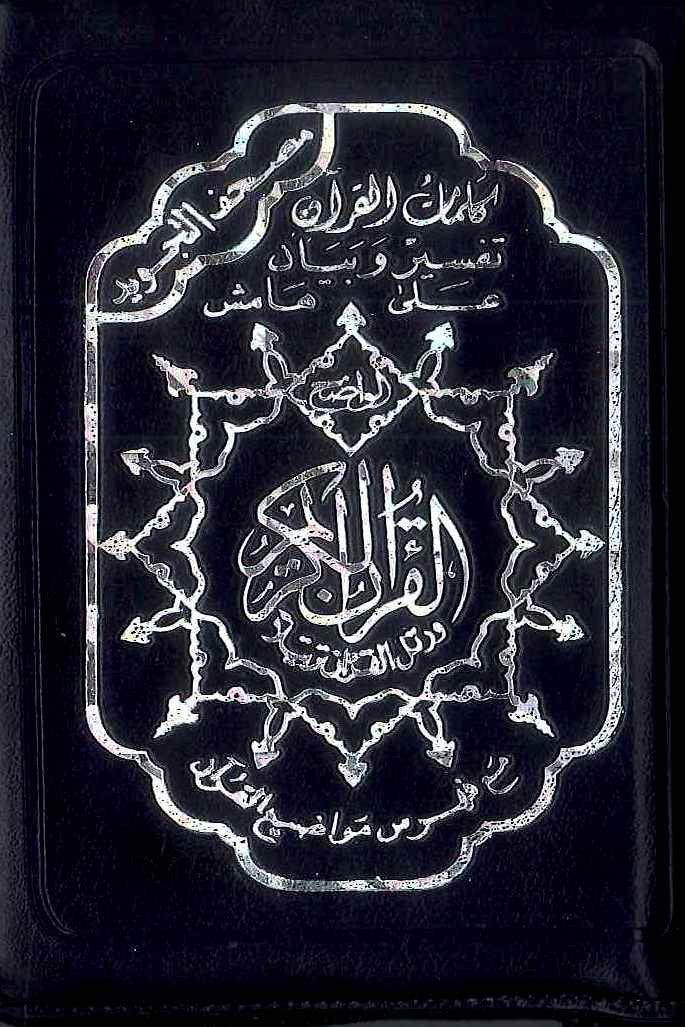 مصحف التجويد
كلمات القرآن
تفسير وَبَيَان
عَلىٰ هَامش
الواضح
القُرآن الكريم
ورتل القرآن ترتيلا
مع فهرس مَواضيع القرآن